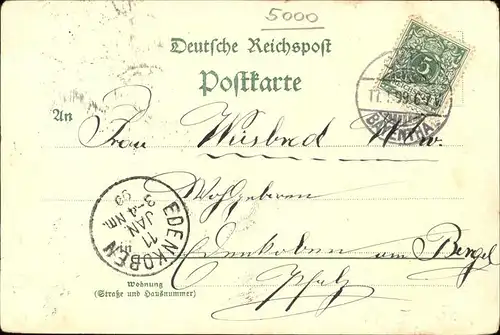 5000
Deutsche Reichspost
Postkarte
5
11.1.99.6-7V.
An Frau Wiesbrod Wtw.
Wohlgeboren
in Edenkoben am Bergel
Pfalz
EDENKOBEN
11
JAN
3-4 Nm.
99
Wohnung
(Straße und Hausnummer)